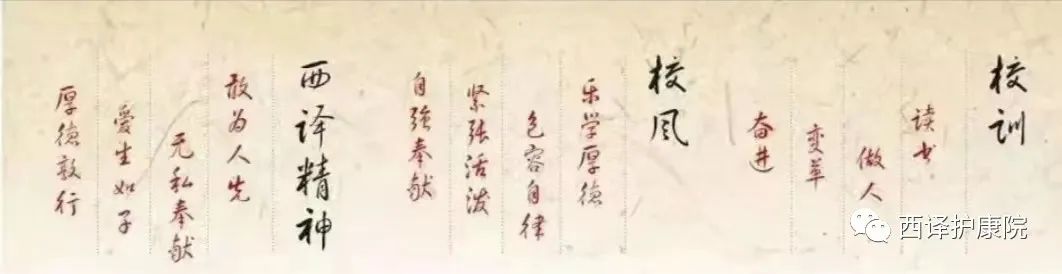 校训
读书
做人
变革
奋进
校风
乐学厚德
包容自律
紧张活泼
自强奉献
西译精神
敢为人先
无私奉献
爱生如子
厚德敦行
西译护康院